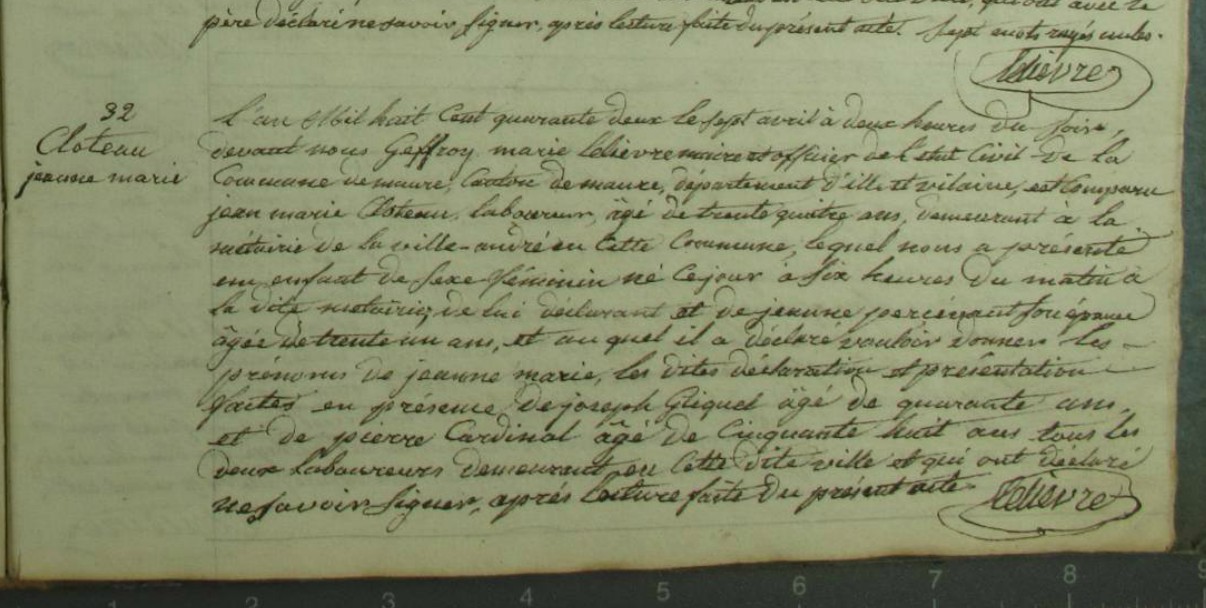 père déclaré ne savoir signer, après lecture faite du présent acte. Sept mots rayés nuls.
Lelièvre
32
Cloteau
jeanne marie
L'an Mil huit Cent quarante deux le sept avril à deux heures du soir,
devant nous Geffroy marie Lelievre maire et officier de l'etat Civil de la
Commune de maure, Canton de maure, département d'ille et vilaine, est Comparu
jean marie Cloteau, laboureur, âgé de trente quatre ans, demeurant à la
métairie de la ville-andré en Cette Commune, lequel nous a présenté
un enfant de sexe féminin né Ce jour à six heures du matin à
la dite métairie, de lui déclarant et de jeanne son épouse
âgée de trente un ans, et auquel il a déclaré vouloir donner les
prénoms de jeanne marie, les dites déclaration et présentation
faites en présence de joseph Gliquel âgé de quarante ans,
et de pierre Cardinal âgé de Cinquante huit ans tous les
deux laboureurs demeurant en Cette dite ville et qui ont déclaré
ne savoir signer, après lecture faite du présent acte
Lelièvre
1 2 3 4 5 6 7 8 9